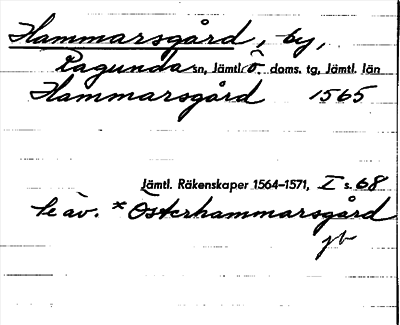 Hammarsgård, by,
Ragunda sn, Jämtl. ö. doms. tg, Jämtl. län
Hammarsgård 1565
Jämtl. Räkenskaper 1564–1571, I s. 68
Se äv. *Österhammarsgård